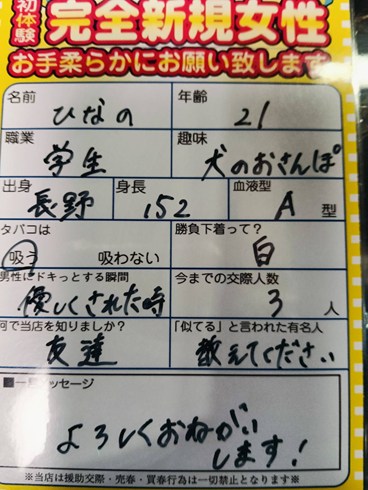 初体験
完全新規女性
お手柔らかにお願い致します
名前 ひなの 年齢 21
職業 学生 趣味 犬のおさんぽ
出身 長野 身長 152 血液型 A 型
タバコは 吸う 吸わない 勝負下着って? 白
男性にドキっとする瞬間 優しくされた時 今までの交際人数 3 人
何で当店を知りましたか? 友達 「似てる」と言われた有名人 教えてください
■一言メッセージ
よろしくおねがい
します!
※当店は援助交際・売春・買春行為は一切禁止となります※